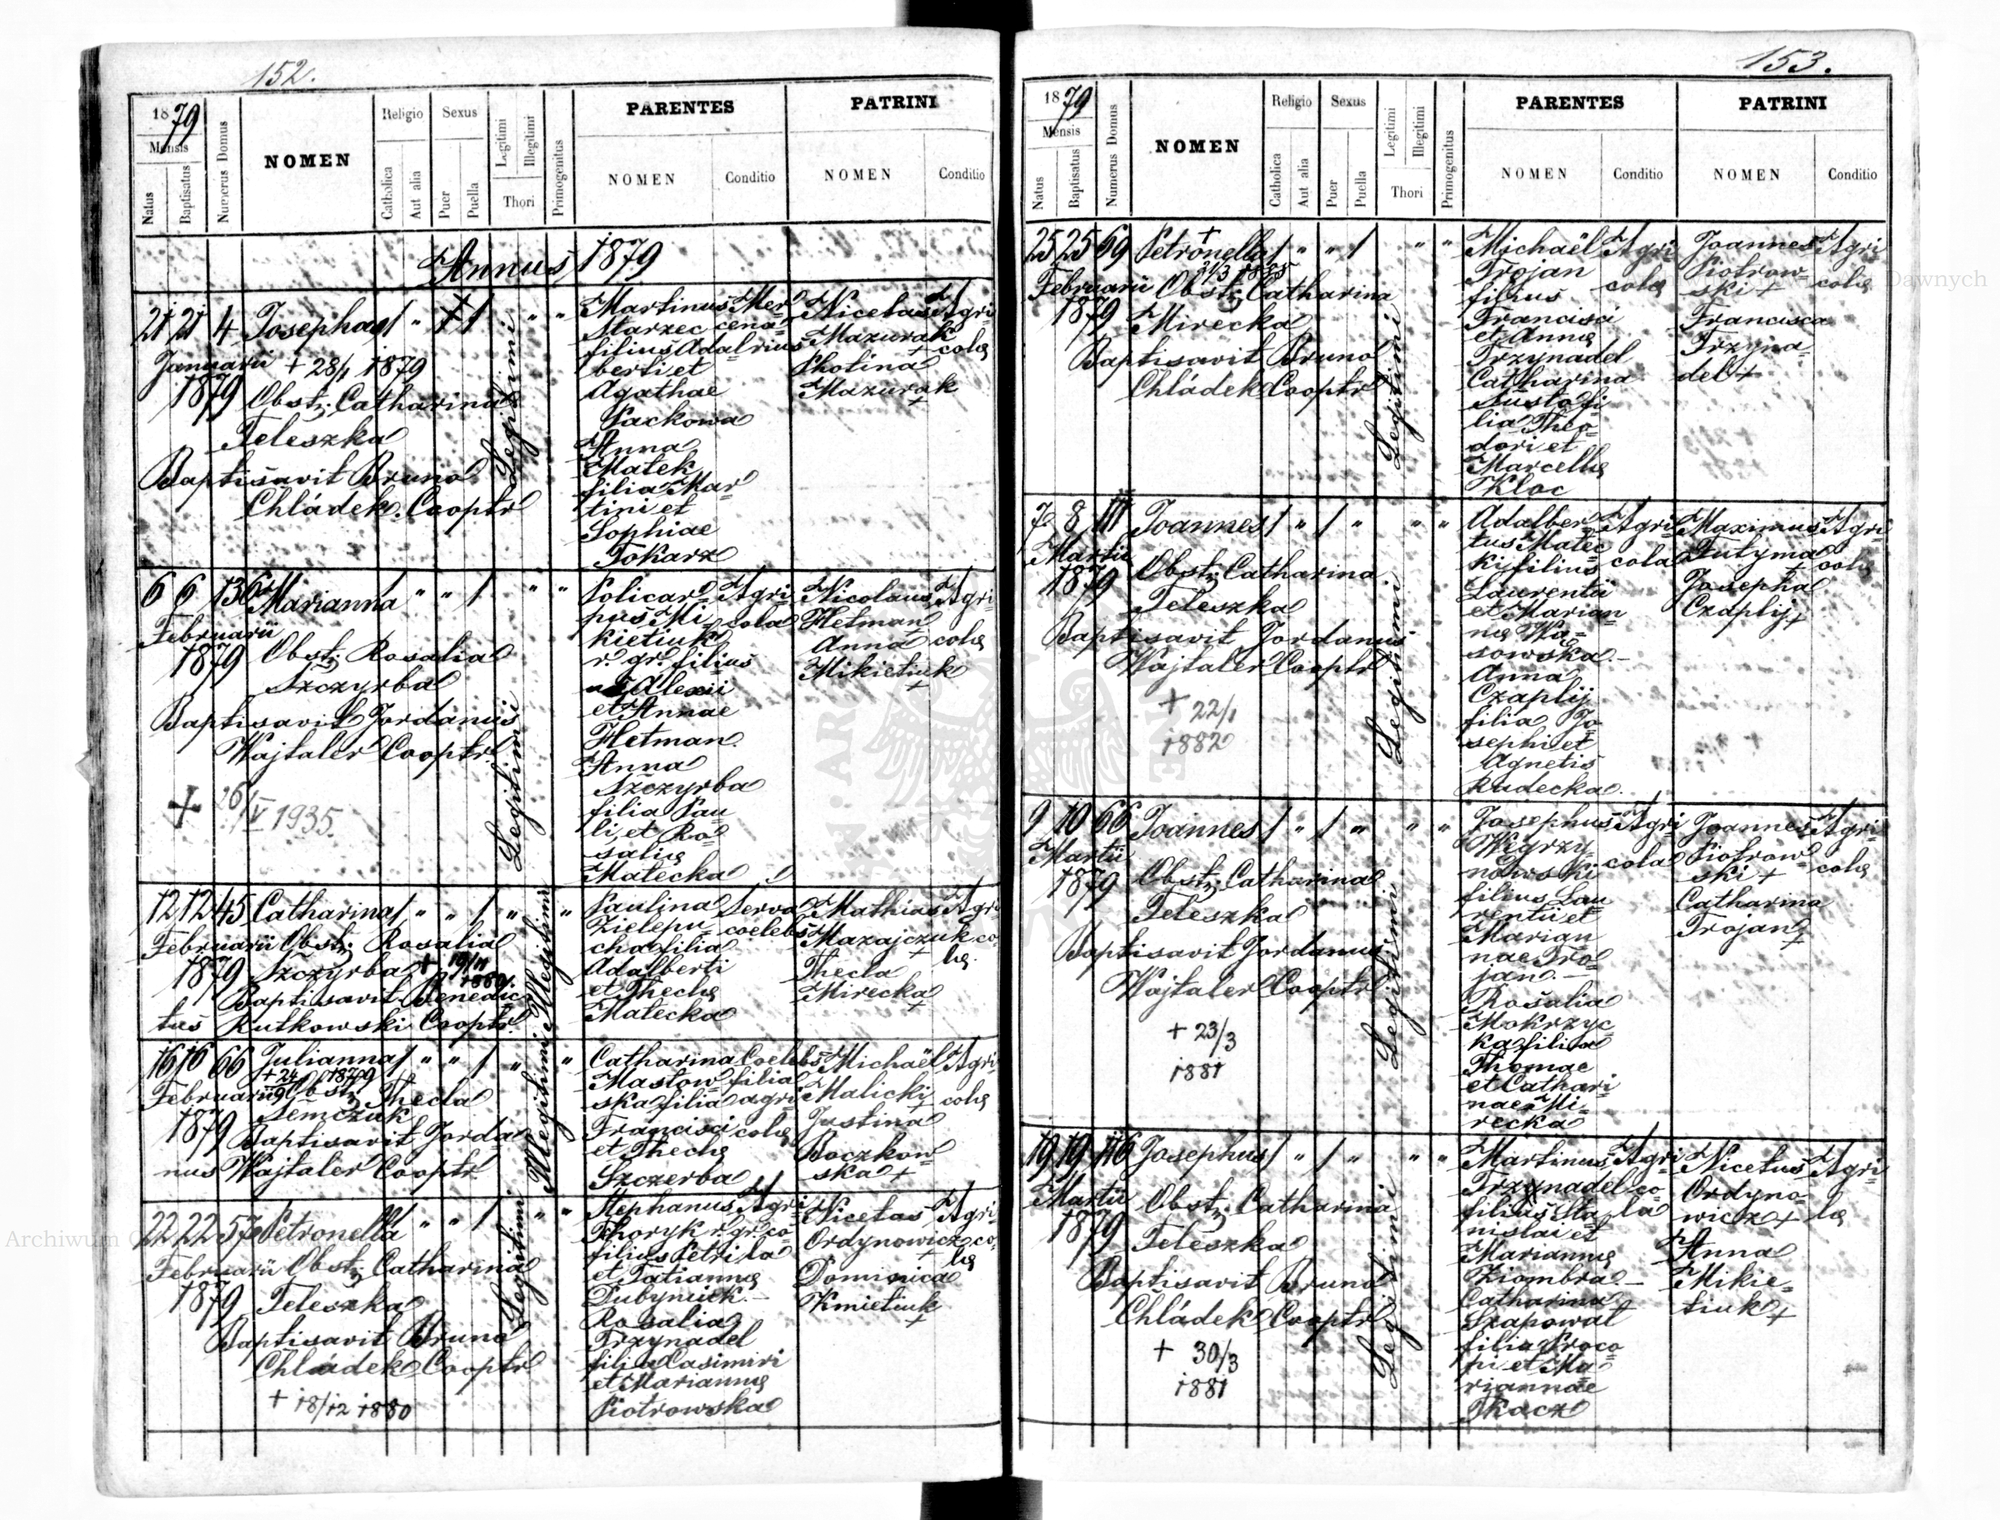 152.
1879
Mensis
Natus
Baptisatus
Numerus Domus
NOMEN
Religio
Catholica
Aut alia
Sexus
Puer
Puella
Legitimi
Illegitimi
Thori
Primogenitus
PARENTES
NOMEN
Conditio
PATRINI
NOMEN
Conditio
Annus 1879
21 21 4 Josepha 1 " 1 " "
Januarii + 28/1 1879
1879 Obstr. Catharina
Teleszka
Baptisavit Bruno
Chládek Cooptr
Legitimi
Martinus
Marzec
filius Adal
berti et
Agathae
Packowa
Anna
Matek
filia Mar
tini et
Sophiae
Tokarz
Mer
cena
rius
Nicetas
Mazurak
+
Photina
Mazurak
+
Agri
colę
6 6 136 Marianna 1 " " 1 " "
Februarii
1879 Obstr. Rosalia
Szczyrba
Baptisavit Jordanus
Wajtaler Cooptr.
+ 26/V 1935.
Legitimi
Policar
pus Mi
kietiuk
r. gr. filius
Alexii
et Annae
Hetman.
Anna
Szczyrba
filia Pau
li et Ro
salię
Małecka
Agri
cola
Nicolaus
Hetman
Anna
Mikietiuk
+
Agri
colę
12 12 45 Catharina 1 " " 1 " "
Februarii Obstr. Rosalia
1879 Szczyrba + 19/11 1880.
Baptisavit Benedic
tus Rutkowski Cooptr.
Illegitimi
Paulina
Zielepu
cha filia
Adalberti
et Theclę
Małecka
Serva
coelebs
Mathias
Mazajczuk
+
Thecla
Mirecka
+
Agri
co
lę.
16 16 66 Julianna 1 " " 1 " "
+ 24 1879
Februarii Obstr. Thecla
Semczuk
1879 Baptisavit Jorda
nus Wajtaler Cooptr.
Illegitimi
Catharina
Masłow
ska filia
Francisci
et Theclę
Szczerba
Coelebs
filia
agri
colę
Michaël
Malicki
Justina
Boczkow
ska +
Agri
colę
22 22 57 Petronella 1 " " 1 " "
Februarii Obstr. Catharina
1879 Teleszka
Baptisavit Bruno
Chládek Cooptr.
+ 18/12 1880
Legitimi
Stephanus
Thoryk r. gr.
filius Petri
et Tatiannę
Dubyniek.
Rosalia
Trzynadel
filia Casimiri
et Mariannę
Piotrowska
Agri
co
la
Nicetas
Ordynowicz
+
Dominica
Kmietiuk
+
Agri
co
lę
153.
1879
Mensis
Natus
Baptisatus
Numerus Domus
NOMEN
Religio
Catholica
Aut alia
Sexus
Puer
Puella
Legitimi
Illegitimi
Thori
Primogenitus
PARENTES
NOMEN
Conditio
PATRINI
NOMEN
Conditio
25 25 69 Petronella 1 " " 1 " "
+
Februarii Obstr. Catharina
1879 Mirecka
Baptisavit Bruno
Chládek Cooptr
Legitimi
Michaël
Trojan
filius
Francisci
et Annę
Trzynadel
Catharina
fi
lia Theo
dori et
Marcellę
Kloc
Agri
cola
Joannes
Piotrow
ski +
Francisca
Trzyna
del +
Agri
colę
7 8 111 Joannes 1 " 1 " " "
Martii
1879 Obstr. Catharina
Teleszka
Baptisavit Jordanus
Wajtaler Cooptr
+ 22/1
1882
Legitimi
Adalber
tus Malec
ki filius
Laurentii
et Marian
nę Wą
sowska
Anna
Czaplij
filia Jo
sephi et
Agnetis
Rudecka.
Agri
cola
Maximus
Futyma
+
Josepha
Czaplij
+
Agri
colę
9 10 66 Joannes 1 " 1 " " "
Martii
1879 Obstr. Catharina
Teleszka
Baptisavit Jordanus
Wajtaler Cooptr
+ 23/3
1881
Legitimi
Josephus
Węgrzy
nowski
filius Lau
rentii et
Marian
nae Tro
jan.
Rosalia
Mokrzyc
ka filia
Thomae
et Cathari
nae Mi
recka
Agri
cola
Joannes
Piotrow
ski +
Catharina
Trojan
+
Agri
colę
19 19 116 Josephus 1 " 1 " " "
Martii
1879 Obstr. Catharina
Teleszka
Baptisavit Bruno
Chládek Cooptr
+ 30/3
1881
Legitimi
Martinus
Trzynadel
filius Sta
nislai et
Mariannę
Ziombra
Catharina
Szapował
filia Proco
pi et Ma
riannae
Tkacz
Agri
co
la
Nicetus
Ordyno
wicz +
Anna
Mikie
tiuk +
Agri
lę